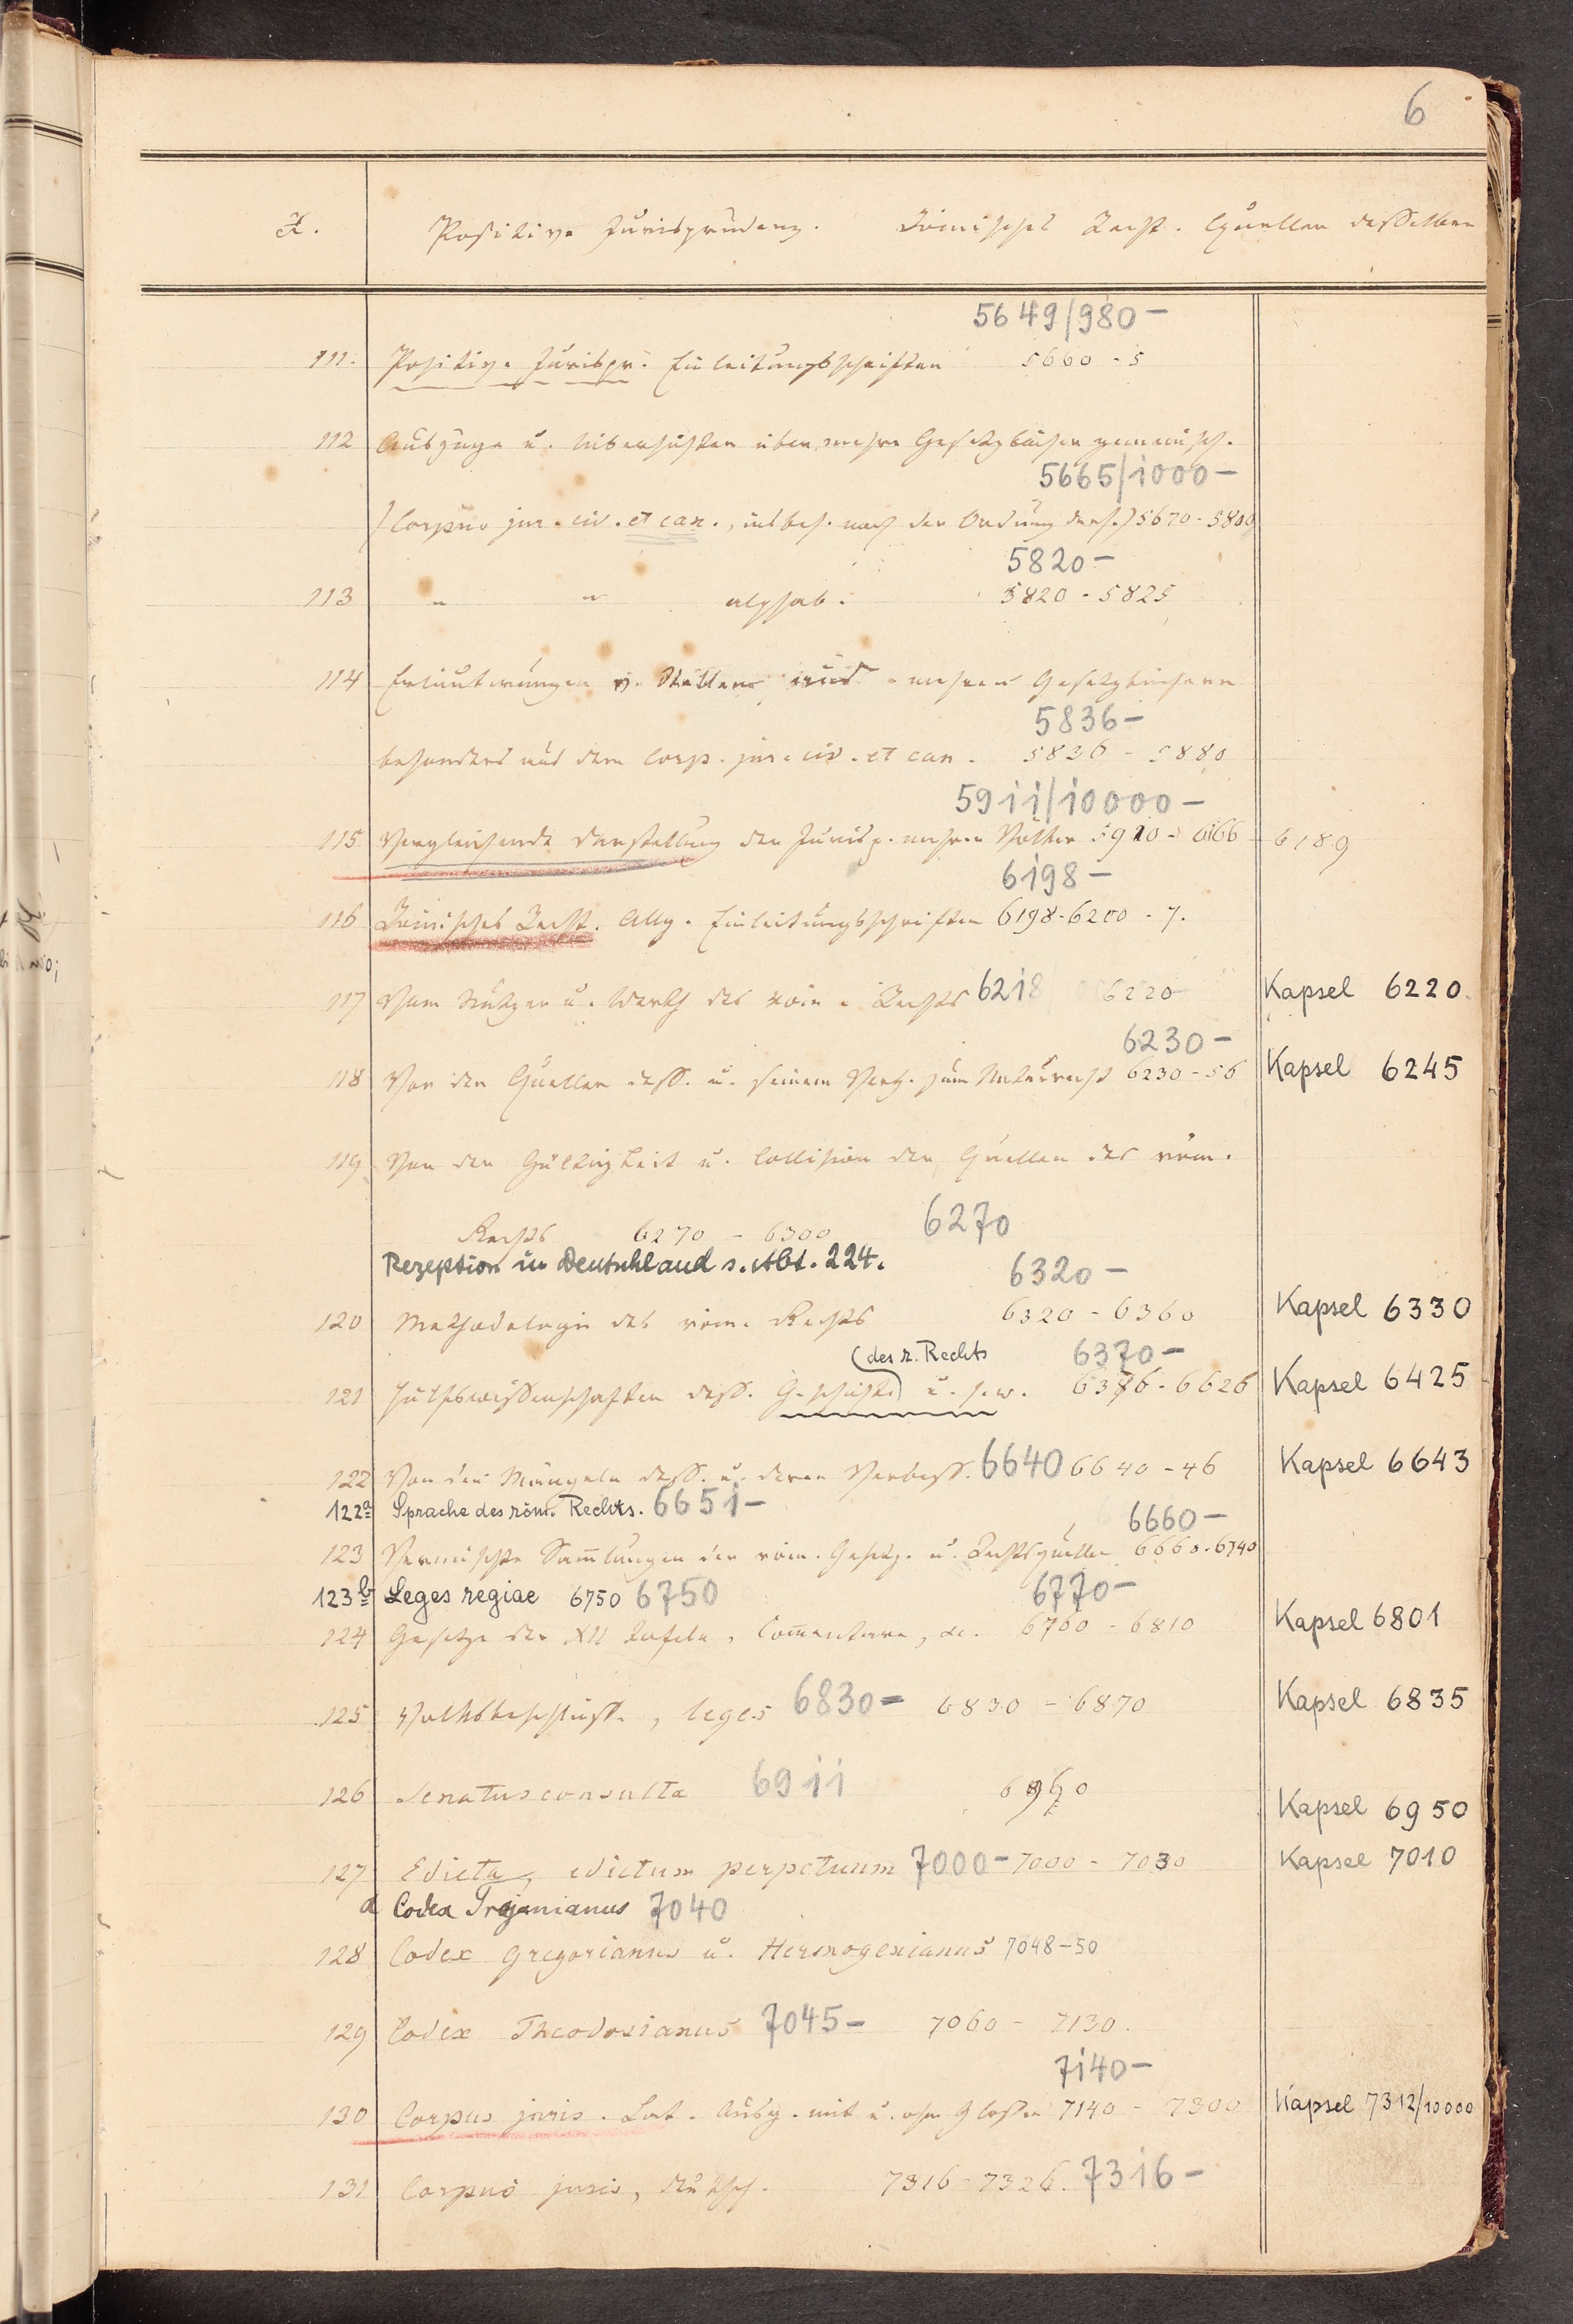 6
X. Positive Jurisprudenz. Römisches Recht. Quellen desselben
5649/980 –
111. Positive Jurispr. Einleitungsschriften 5660 - 5
112 Auszüge u. Uebersichten über mehre Gesetzbücher gemeinsch.
5665/1000 –
(Corpus jur. civ. et can., insbes. nach der Ordnung ders.) 5670 - 5800
5820 –
113 " " alphab. 5820 - 5825
114 Erläuterungen v. Stellen aus mehren Gesetzbüchern
5836 –
besonders aus dem Corp. jur. civ. et can. 5826 - 5880
5911/10000 –
115 Vergleichende Darstellung der Jurisp. mehrer Völker 5910 - 6166 - 6189
6198 –
116 Römisches Recht. Allg. Einleitungsschriften 6198 - 6200 - 7.
117 Vom Nutzen u. Werth des röm. Rechts 6218 6220 Kapsel 6220
6230 –
118 Von den Quellen dess. u. seinem Verh. zum Naturrecht 6230 - 56 Kapsel 6245
119 Von der Gültigkeit u. Collision der Quellen des röm.
Rechts 6270 - 6300 6270
Rezeption in Deutschland s. Abt. 224.
6320 –
120 Methodologie des röm. Rechts 6320 - 6360 Kapsel 6330
(des r. Rechts 6370 –
121 Hülfswissenschaften dess. Geschichte) u. s. w. 6376 - 6626 Kapsel 6425
122 Von den Mängeln dess. u. deren Verbess. 6640 6640 - 46 Kapsel 6643
122a Sprache des röm. Rechts. 6651 –
6660 –
123 Vermischte Sammlungen der röm. Gesetz- u. Rechtsquellen 6660 - 6740
123b Leges regiae 6750 6750
6770 –
124 Gesetze der XII Tafeln, Commentare, &c. 6760 - 6810 Kapsel 6801
125 Volksbeschlüsse, leges 6830 – 6830 - 6870 Kapsel 6835
126 Senatusconsulta 6911 6960 Kapsel 6950
127 Edicta, edictum perpetuum 7000 – 7000 - 7030 Kapsel 7010
a Codex Trajanianus 7040
128 Codex Gregorianus u. Hermogenianus 7048 - 50
129 Codex Theodosianus 7045 – 7060 - 7130.
7140 –
130 Corpus juris. Lat. Ausg. mit u. ohne Glossen 7140 - 7300 Kapsel 7312/10000
131 Corpus juris, deutsch. 7316 - 7326. 7316 –